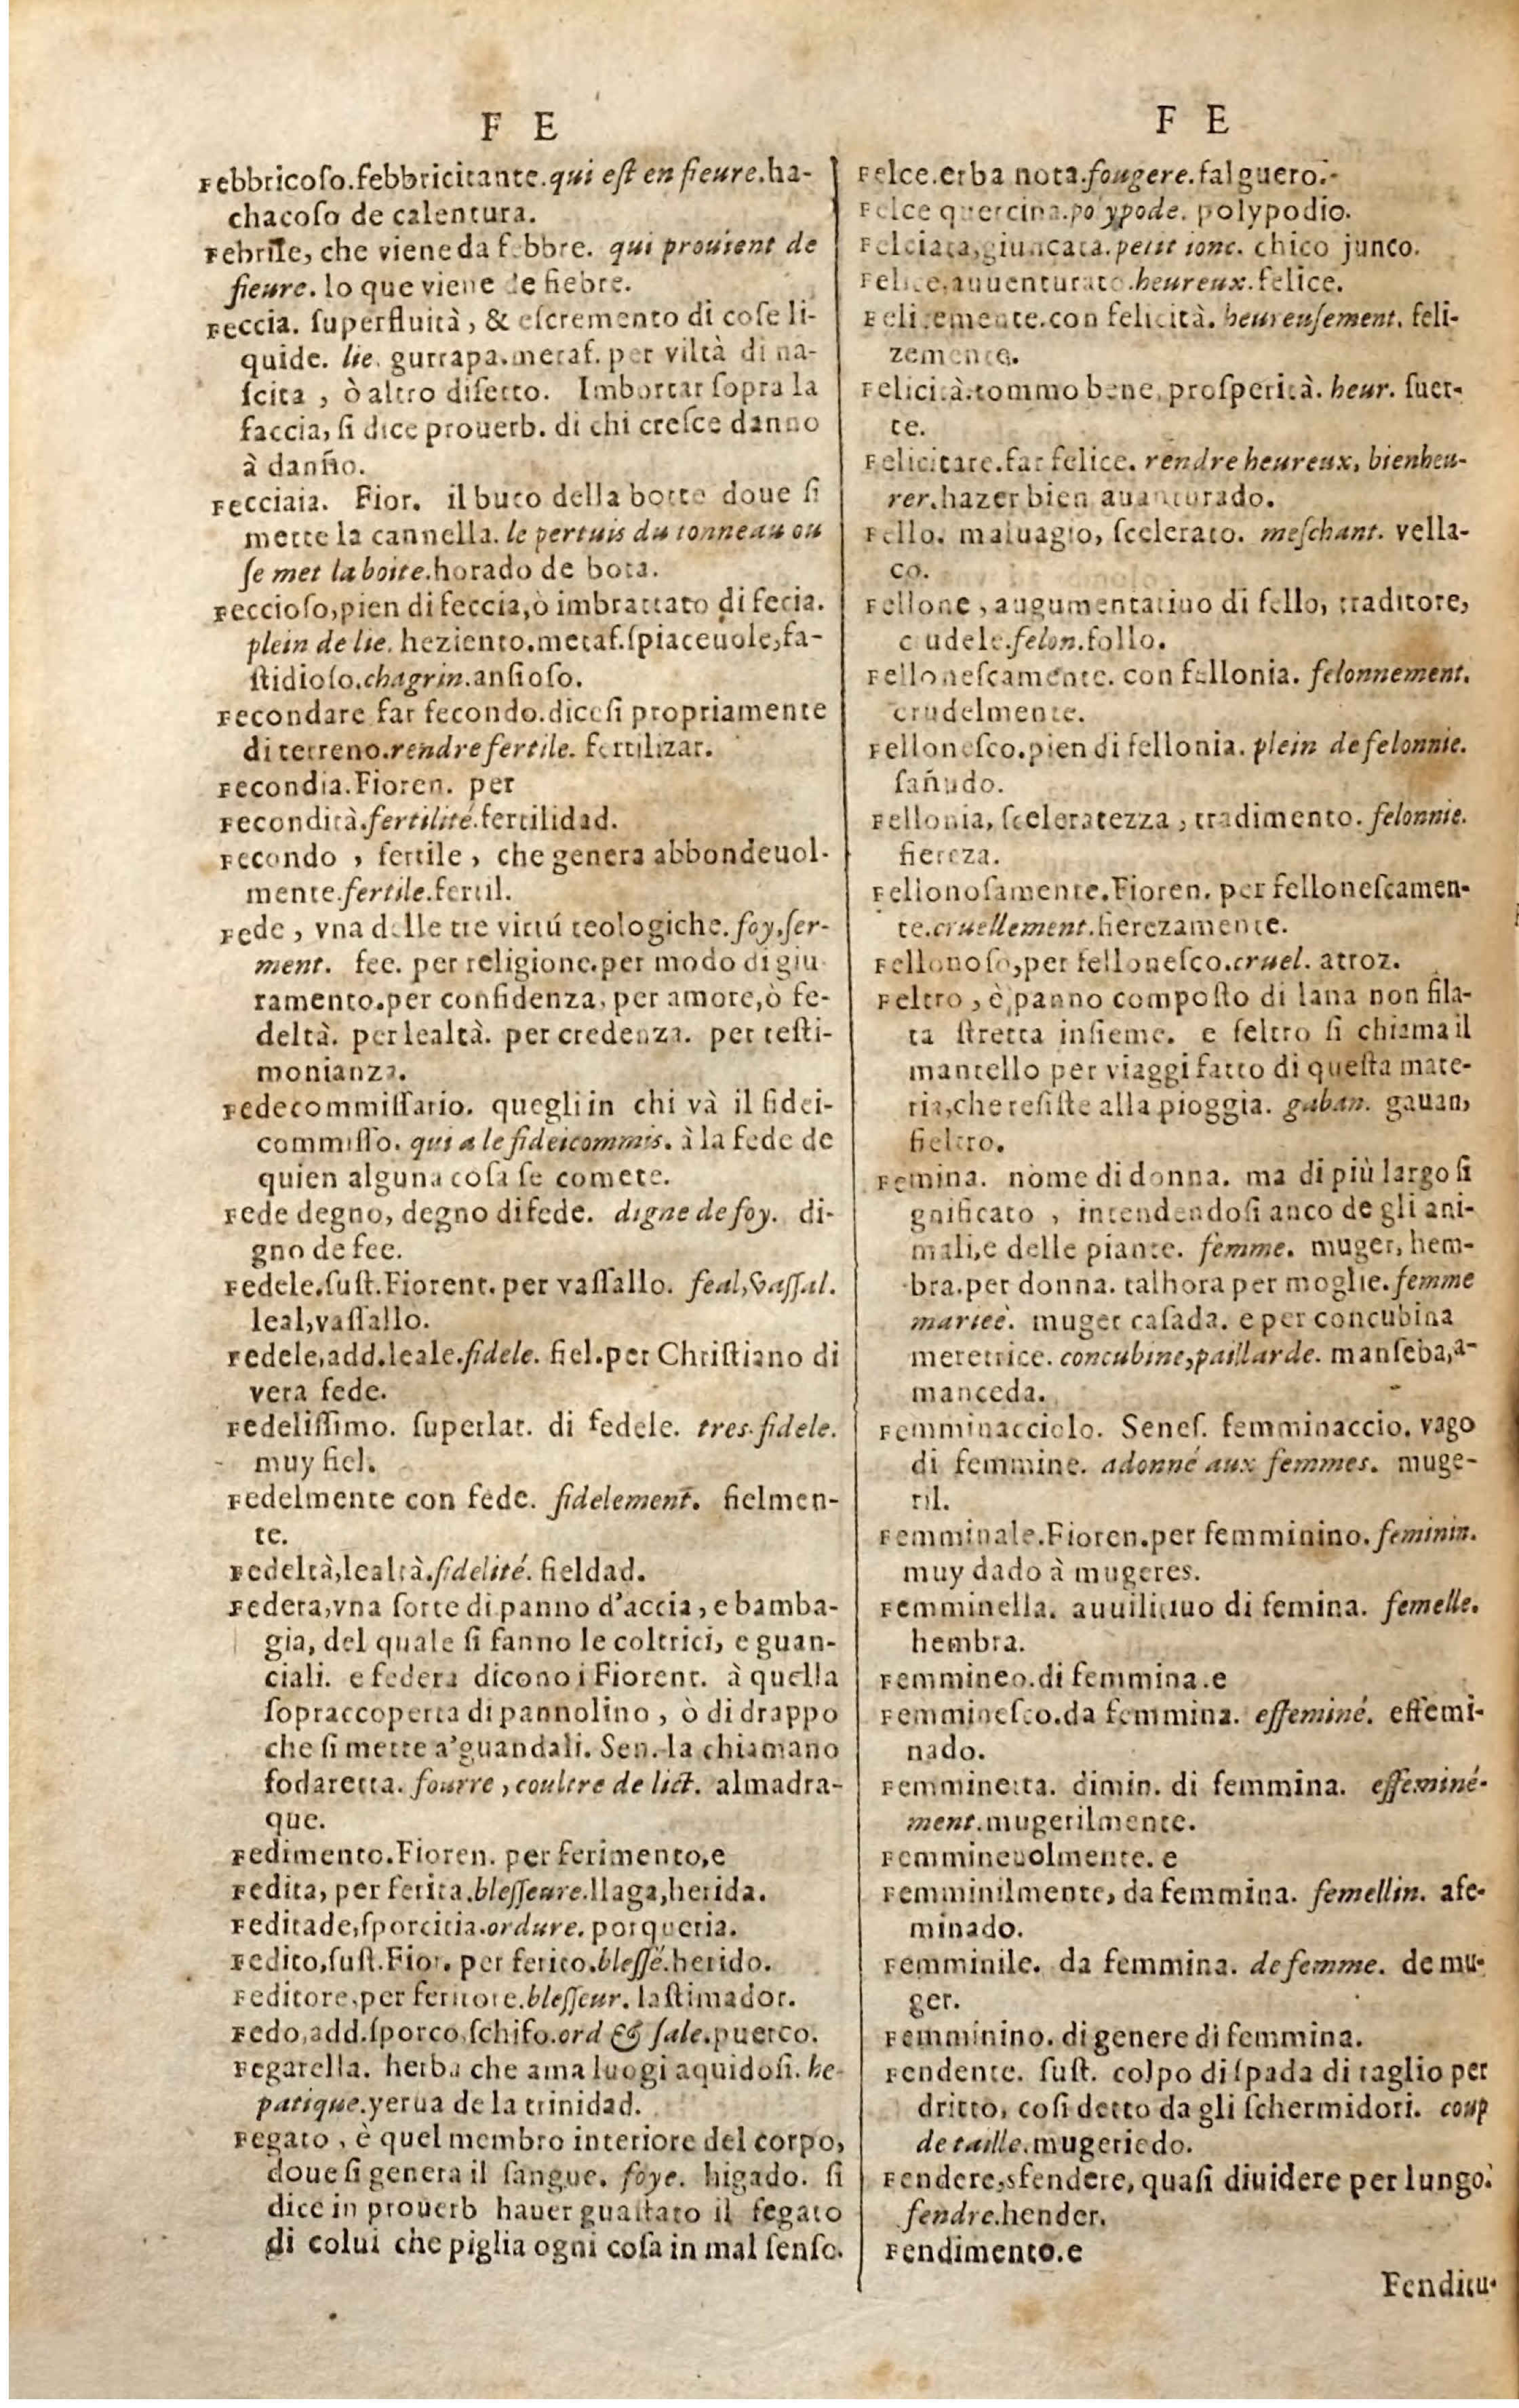 F E
Febbricoſo.febbricitante.qui eſt en fieure.ha-
chacoſo de calentura.
Febrile, che viene da febbre. qui prouient de
fieure. lo que viene de fiebre.
Feccia. ſuperfluità, & eſcremento di coſe li-
quide. lie. gurrapa.metaf. per viltà di na-
ſcita, ò altro difetto. Imbottar ſopra la
faccia, ſi dice prouerb. di chi creſce danno
à danño.
Fecciaia. Fior. il buco della botte doue ſi
mette la cannella. le pertuis du tonneau ou
ſe met la boite.horado de bota.
Feccioſo,pien di feccia,ò imbrattato di fecia.
plein de lie. heziento.metaf.ſpiaceuole,fa-
ſtidioſo.chagrin.anſioſo.
Fecondare far fecondo.diceſi propriamente
di terreno.rendre fertile. fertilizar.
Fecondia.Fioren. per
Fecondità.fertilité.fertilidad.
Fecondo, fertile, che genera abbondeuol-
mente.fertile.fertil.
Fede, vna delle tre virtú teologiche.foy,ſer-
ment. fee. per religione.per modo di giu-
ramento.per confidenza, per amore,ò fe-
deltà. per lealtà. per credenza. per teſti-
monianza.
Fedecommiſſario. quegli in chi và il fidei-
commiſſo. qui a le fideicommis. à la fede de
quien alguna coſa ſe comete.
Fede degno, degno di fede. digne de foy. di-
gno de fee.
Fedele.ſuſt.Fiorent. per vaſſallo. feal,vaſſal.
leal,vaſſallo.
Fedele,add.leale.fidele. fiel.per Chriſtiano di
vera fede.
Fedeliſſimo. ſuperlat. di fedele. tres-fidele.
muy fiel.
Fedelmente con fede. fidelement. fielmen-
te.
Fedeltà,lealtà.fidelité. fieldad.
Federa,vna ſorte di panno d'accia, e bamba-
gia, del quale ſi fanno le coltrici, e guan-
ciali. e federa dicono i Fiorent. à quella
ſopraccoperta di pannolino, ò di drappo
che ſi mette a'guandali. Sen. la chiamano
fodaretta. fourre, coultre de lict. almadra-
que.
Fedimento.Fioren. per ferimento,e
Fedita, per ferita.bleſſeure.llaga,herida.
Feditade,ſporcitia.ordure. porqueria.
Fedito,ſuſt.Fior. per ferito.bleſſé.herido.
Feditore,per feritore.bleſſeur. laſtimador.
Fedo,add.ſporco,ſchifo.ord & ſale.puerco.
Fegatella. herba che ama luogi aquidoſi. he-
patique.yerua de la trinidad.
Fegato, è quel membro interiore del corpo,
doue ſi genera il ſangue. foye. higado. ſi
dice in prouerb hauer guaſtato il fegato
di colui che piglia ogni coſa in mal ſenſo.
F E
Felce.erba nota.fougere.falguero.
Felce quercina.polypode. polypodio.
Felciata,giuncata.petit ionc. chico junco.
Felice.auuenturato.heureux.felice.
Felicemente.con felicità. heureuſement. feli-
zemente.
Felicità.ſommo bene, proſperità. heur. ſuer-
te.
Felicitare.far felice. rendre heureux, bienheu-
rer.hazer bien auanturado.
Fello. maluagio, ſcelerato. meſchant. vella-
co.
Fellone, augumentatiuo di fello, traditore,
crudele.felon.follo.
Felloneſcamente. con fellonia. felonnement.
crudelmente.
Felloneſco.pien di fellonia. plein de felonnie.
ſañudo.
Fellonia, ſceleratezza, tradimento. felonnie.
fiereza.
Fellonoſamente.Fioren. per felloneſcamen-
te.cruellement.fierezamente.
Fellonoſo,per felloneſco.cruel. atroz.
Feltro, è panno compoſto di lana non fila-
ta ſtretta inſieme. e feltro ſi chiama il
mantello per viaggi fatto di queſta mate-
ria,che reſiſte alla pioggia. gaban. gauan,
fieltro.
Femina. nome di donna. ma di più largo ſi
gnificato, intendendoſi anco de gli ani-
mali,e delle piante. femme. muger, hem-
bra.per donna. talhora per moglie.femme
marieè. muger caſada. e per concubina
meretrice. concubine,paillarde. manſeba,a-
manceda.
Femminacciolo. Seneſ. femminaccio. vago
di femmine. adonné aux femmes. muge-
ril.
Femminale.Fioren.per femminino.feminin.
muy dado à mugeres.
Femminella. auuilitiuo di femina. femelle.
hembra.
Femmineo.di femmina.e
Femmineſco.da femmina. effeminé. effemi-
nado.
Femminetta. dimin. di femmina. effeminé-
ment.mugerilmente.
Femmineuolmente. e
Femminilmente, da femmina. femellin. afe-
minado.
Femminile. da femmina. de femme. de mu-
ger.
Femminino. di genere di femmina.
Fendente. ſuſt. colpo di ſpada di taglio per
dritto, coſi detto da gli ſchermidori. coup
de taille.mugeriedo.
Fendere,sfendere, quaſi diuidere per lungo.
fendre.hender.
Fendimento.e
Fenditu-